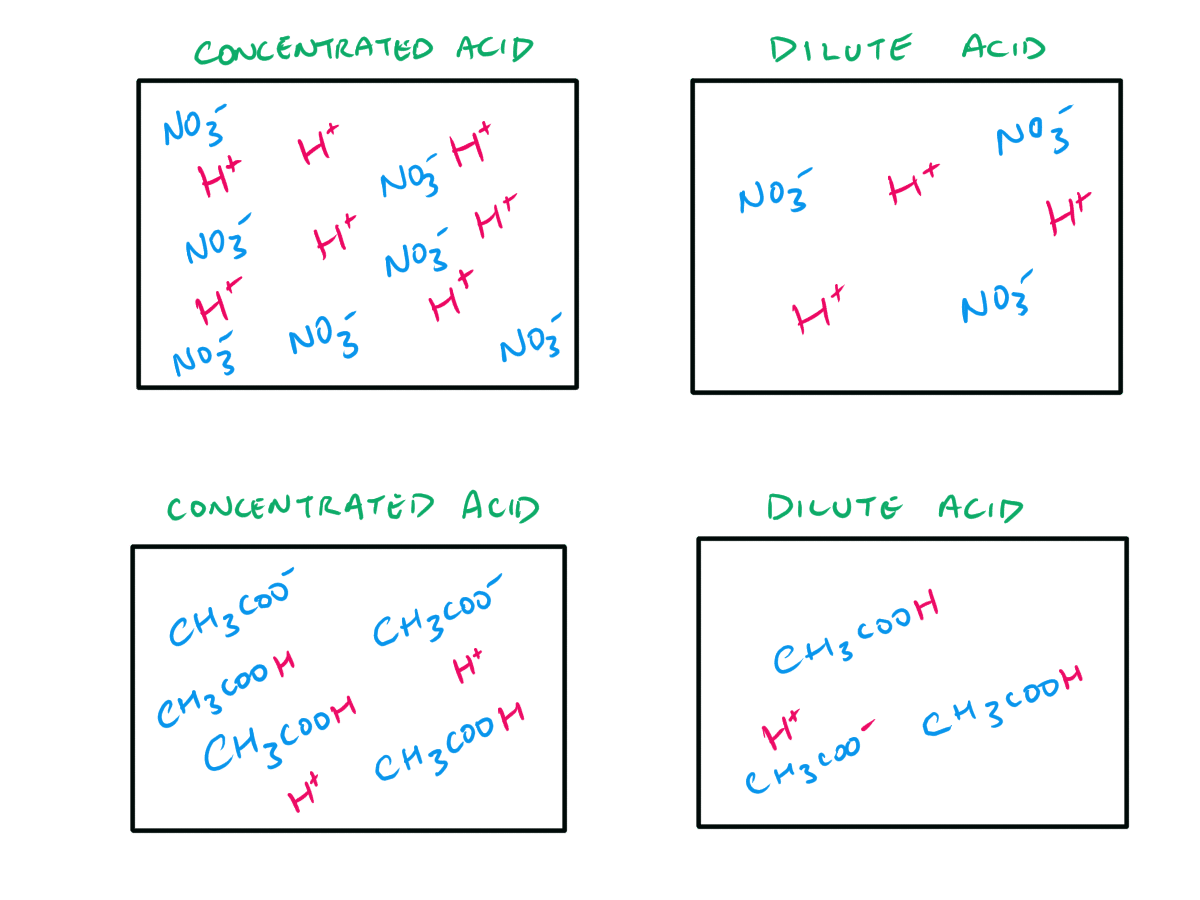 CONCENTRATED ACID
NO₃⁻
H⁺
H⁺
NO₃⁻
H⁺
NO₃⁻
H⁺
NO₃⁻
H⁺
H⁺
H⁺
NO₃⁻
NO₃⁻
NO₃⁻
DILUTE ACID
NO₃⁻
NO₃⁻
H⁺
H⁺
H⁺
NO₃⁻
CONCENTRATED ACID
CH₃COO⁻
CH₃COO⁻
CH₃COOH
H⁺
CH₃COOH
CH₃COOH
H⁺
DILUTE ACID
CH₃COOH
CH₃COOH
H⁺
CH₃COO⁻